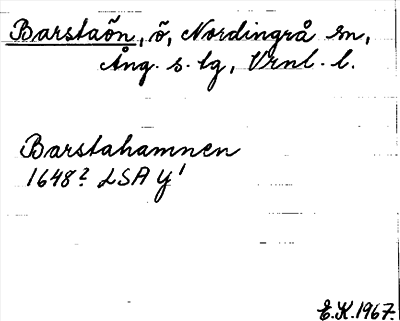 Barstaön, ö, Nordingrå sn,
Ång. s. tg, Vrnl. l.
Barstahamnen
1648? LSA Y¹
E.K.1967.